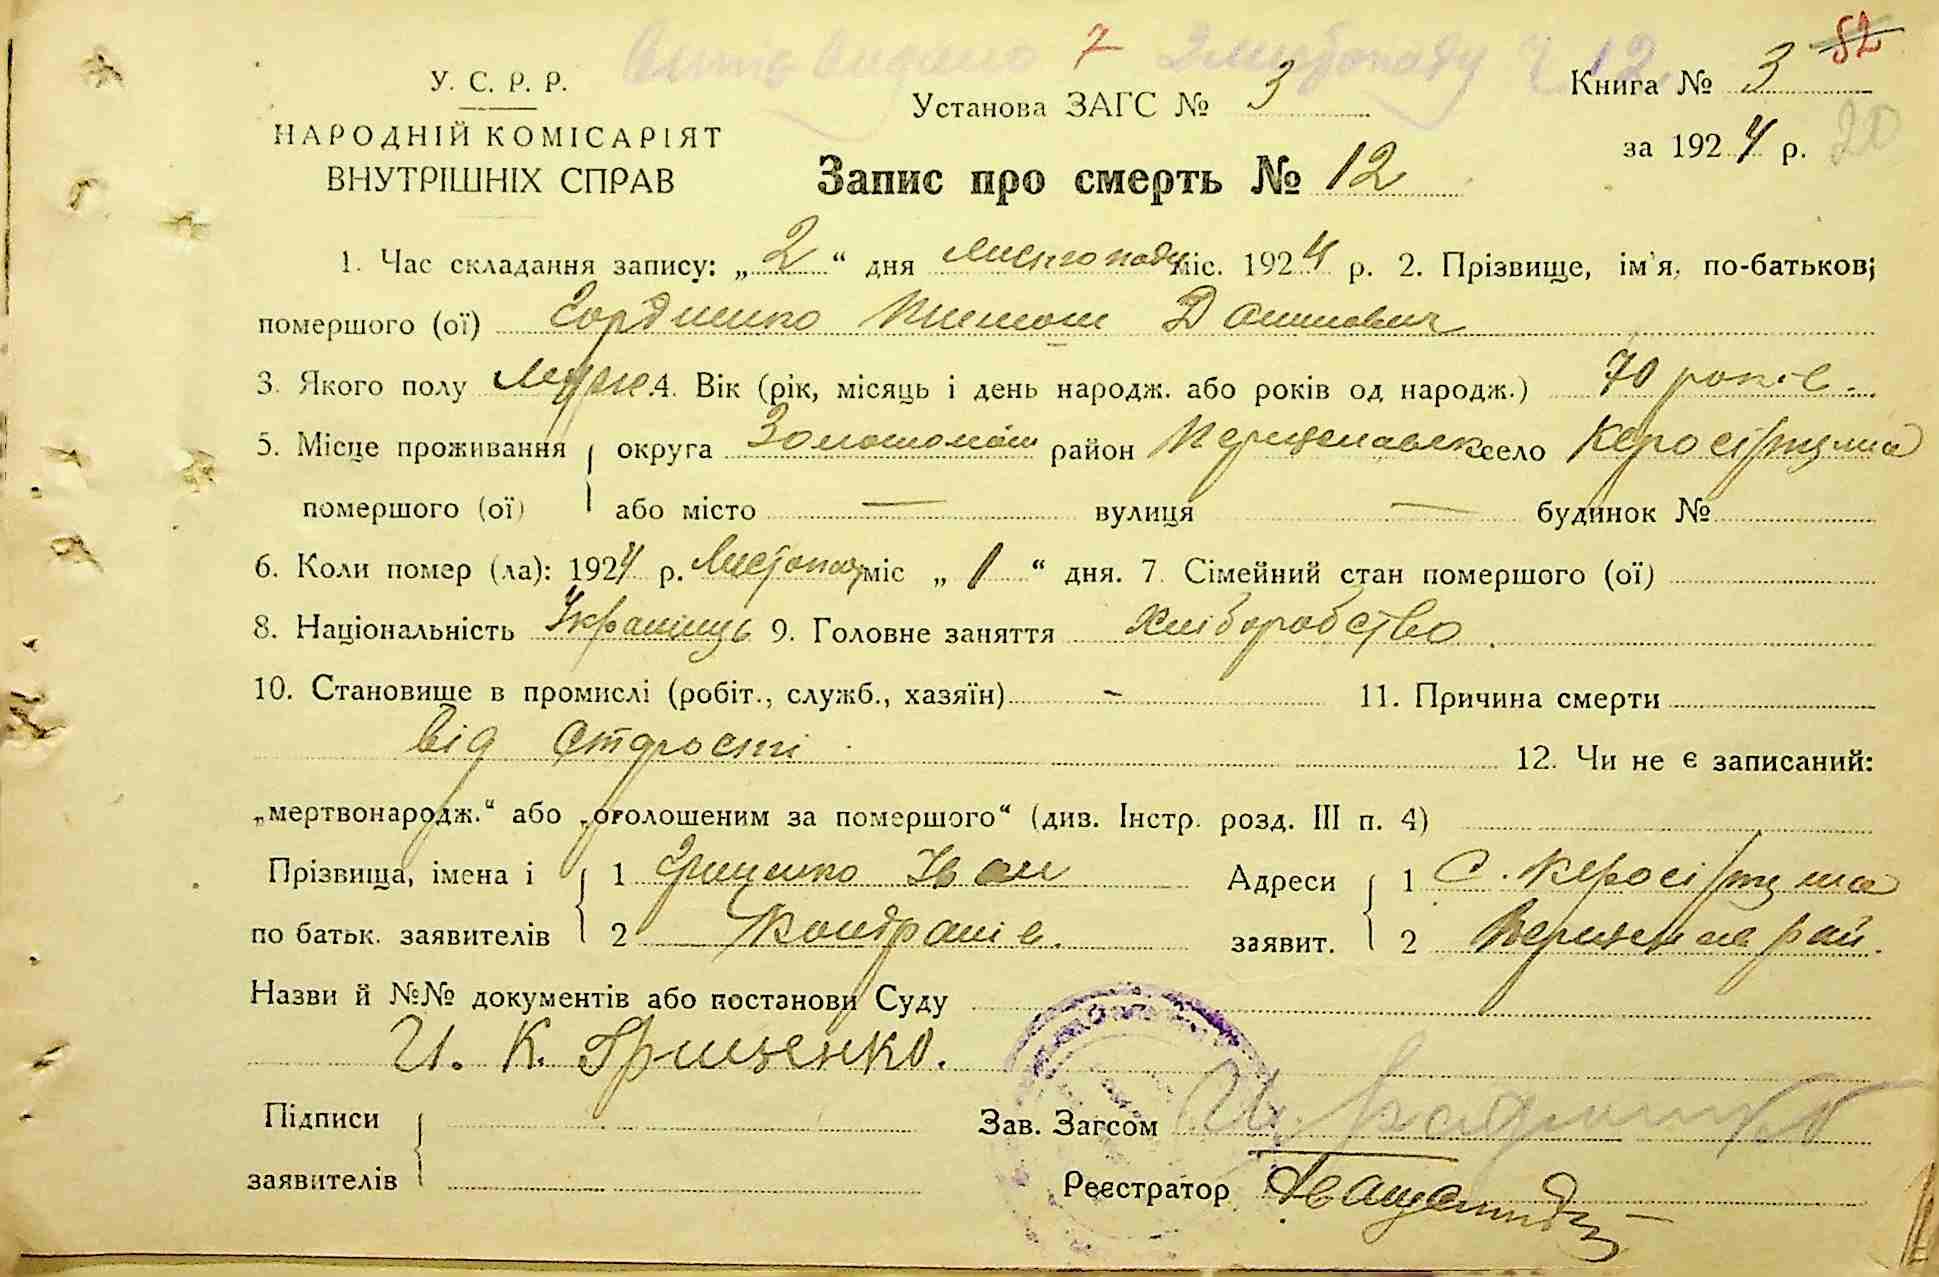 Витяг видано 7 Листопаду Ч. 12.
52
У. С. Р. Р.
Установа ЗАГС № 3
Книга № 3
НАРОДНІЙ КОМІСАРІЯТ
ВНУТРІШНІХ СПРАВ
за 1924 р. 20
Запис про смерть № 12
1. Час складання запису: „2“ дня Листопаду міс. 1924 р. 2. Прізвище, ім'я, по-батькові
помершого (ої) Гордиенко Тимош Данилович
3. Якого полу Муж. 4. Вік (рік, місяць і день народж. або років од народж.) 70 років.
5. Місце проживання округа Золотонош район Переяславск село
помершого (ої) або місто — вулиця — будинок №
6. Коли помер (ла): 1924 р. Листопад міс „1“ дня. 7. Сімейний стан помершого (ої)
8. Національність Українець 9. Головне заняття Хліборобство
10. Становище в промислі (робіт., служб., хазяїн) - 11. Причина смерти
від старости 12. Чи не є записаний:
„мертвонародж.“ або „оголошеним за помершого“ (див. Інстр. розд. III п. 4)
Прізвища, імена і 1 Грищенко Іван Адреси 1 С.
по батьк. заявителів 2 Кондратів. заявит. 2 рай.
Назви й №№ документів або постанови Суду
И. К. Грищенко.
Підписи
Зав. Загсом
заявителів
Реєстратор